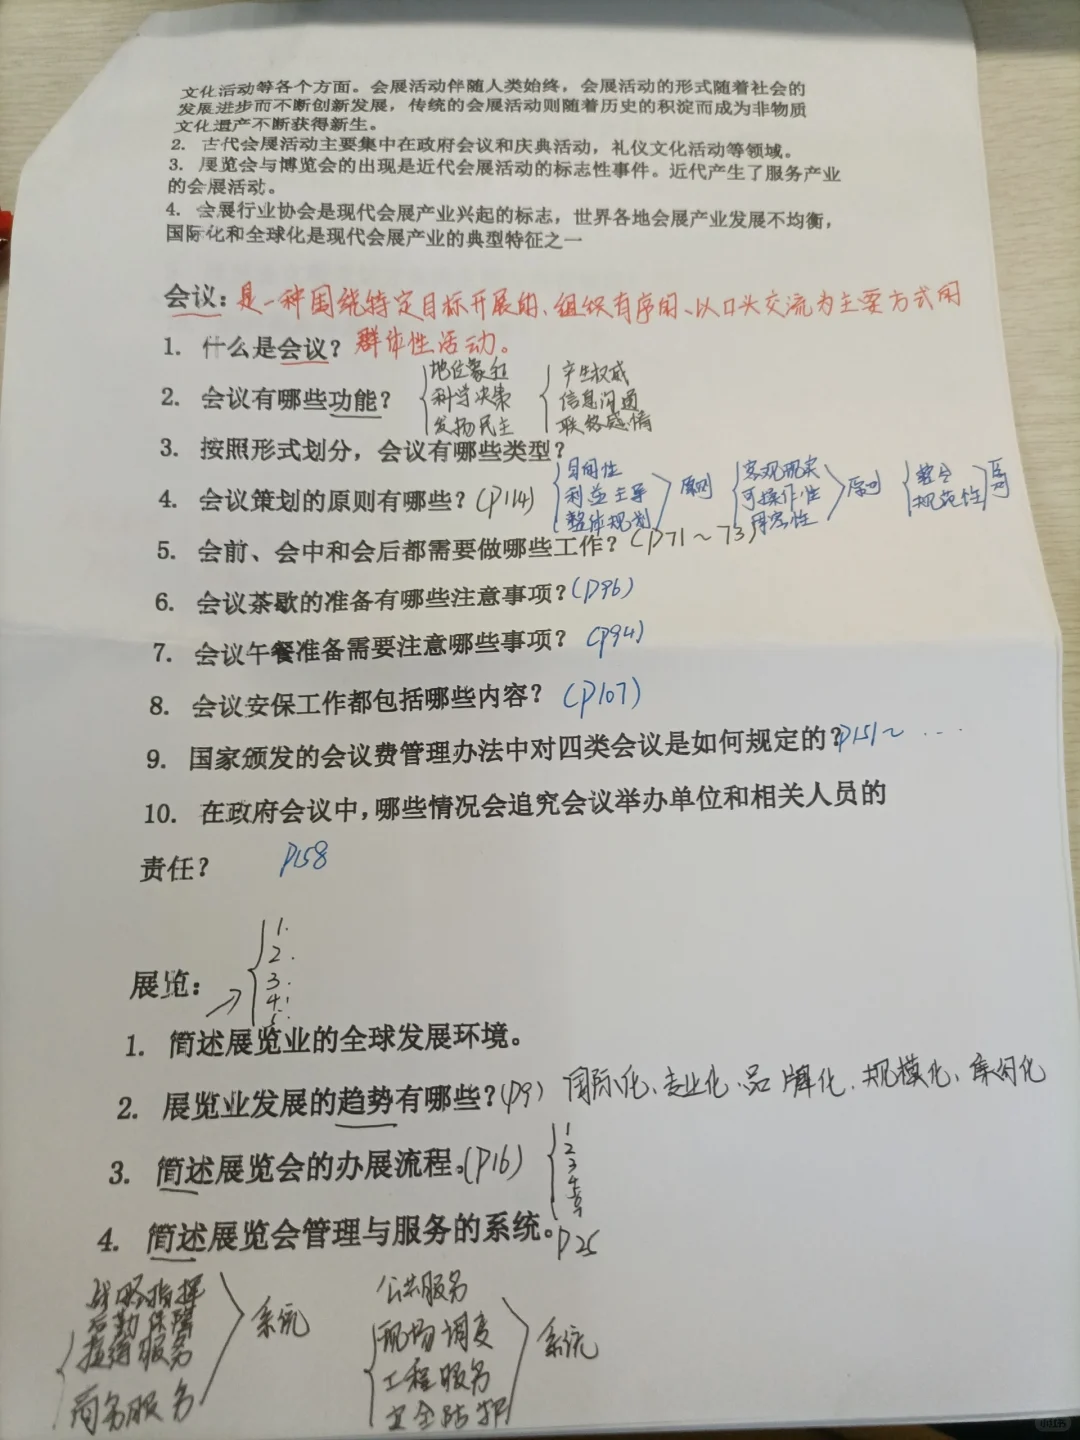 文化活动等各个方面。会展活动伴随人类始终，会展活动的形式随着社会的
发展进步而不断创新发展，传统的会展活动则随着历史的积淀而成为非物质
文化遗产不断获得新生。
2. 古代会展活动主要集中在政府会议和庆典活动，礼仪文化活动等领域。
3. 展览会与博览会的出现是近代会展活动的标志性事件。近代产生了服务产业
的会展活动。
4. 会展行业协会是现代会展产业兴起的标志，世界各地会展产业发展不均衡，
国际化和全球化是现代会展产业的典型特征之一
会议：是一种围绕特定目标开展的、组织有序的、以口头交流为主要方式的
1. 什么是会议？ 群体性活动。
地位象征 产生权威
2. 会议有哪些功能？ 科学决策 信息沟通
发扬民主 联络感情
3. 按照形式划分，会议有哪些类型？
目的性 客观现实 整合
4. 会议策划的原则有哪些？(P114) 利益主导 原则 可操作性 原则 规范性 原则
整体规划
5. 会前、会中和会后都需要做哪些工作？(P71～73)
6. 会议茶歇的准备有哪些注意事项？(P96)
7. 会议午餐准备需要注意哪些事项？ (P94)
8. 会议安保工作都包括哪些内容？ (P107)
9. 国家颁发的会议费管理办法中对四类会议是如何规定的？P151～ ……
10. 在政府会议中，哪些情况会追究会议举办单位和相关人员的
责任？ P158
1.
2.
展览： 3.
4.
5.
1. 简述展览业的全球发展环境。
2. 展览业发展的趋势有哪些？(P9) 国际化、专业化、品牌化、规模化、集团化
1
2
3. 简述展览会的办展流程。(P16) 3
4
4. 简述展览会管理与服务的系统。P25
战略指挥 公共服务
后勤保障 系统 现场调度 系统
服务 工程服务
商务服务 安全防护